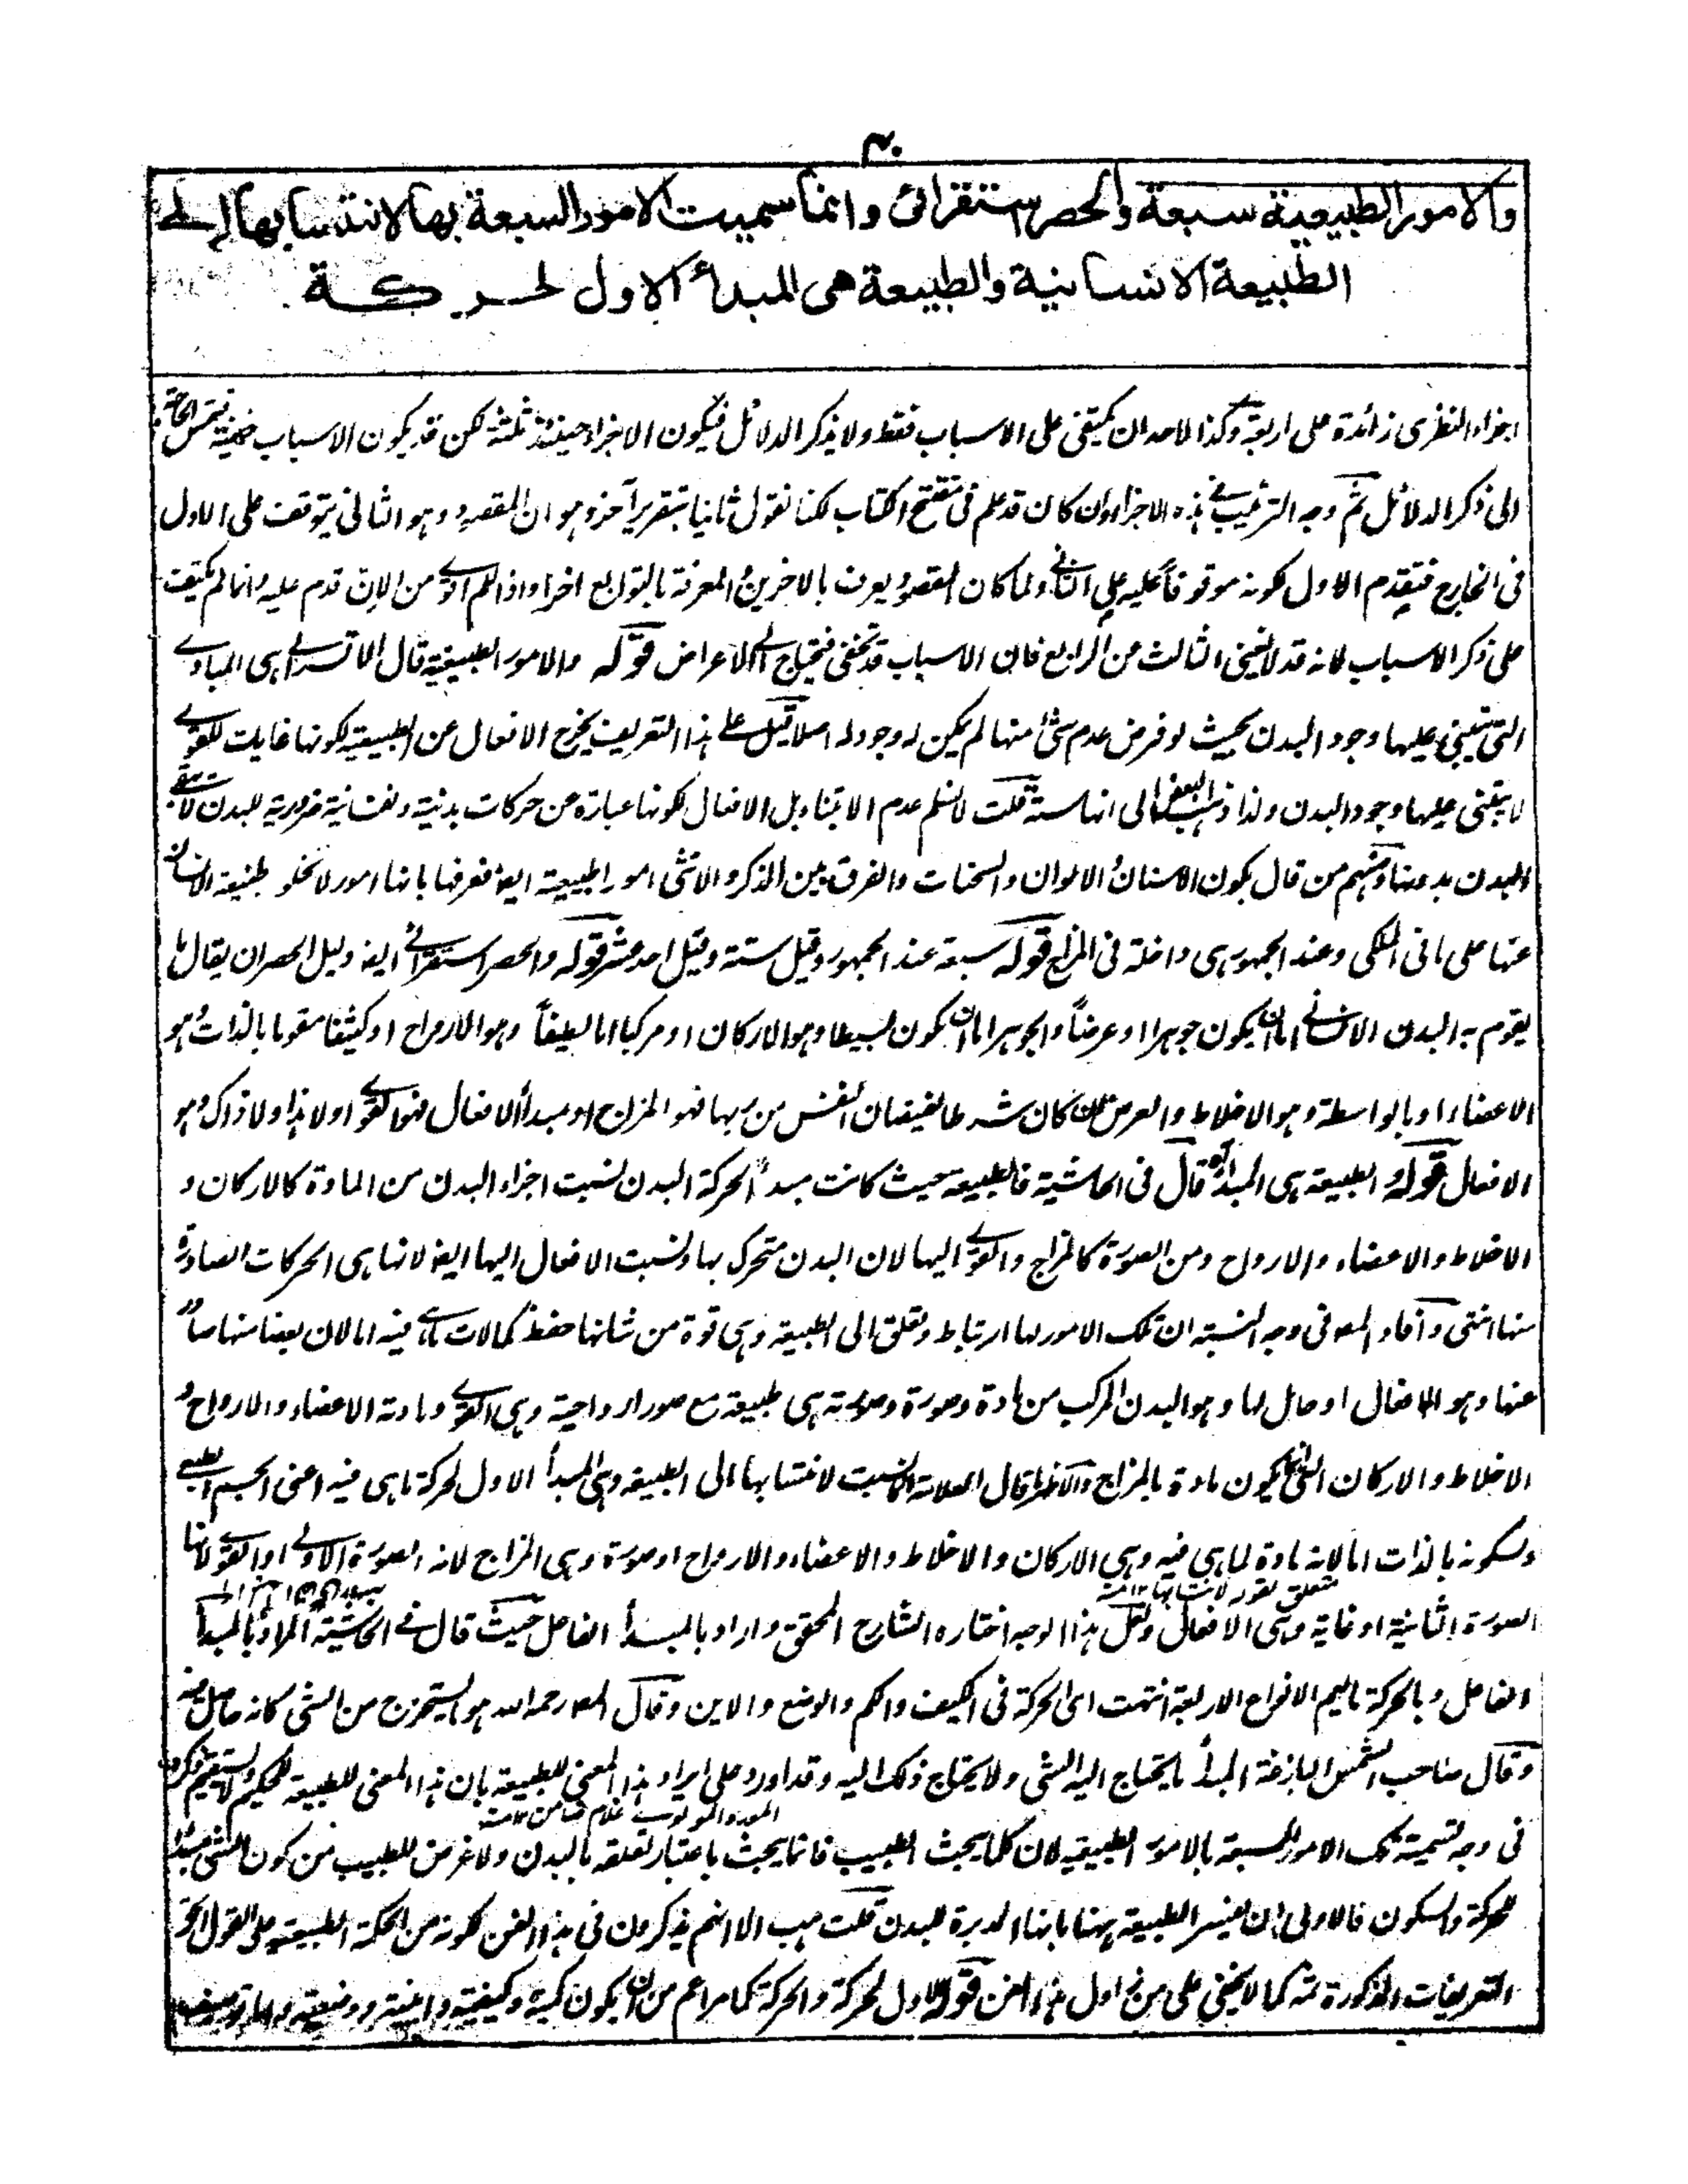 ٣٠
والامور الطبيعية سبعة والحصر استقرائى وانما سميت الامور السبعة بها لانتسابها الى
الطبيعة الانسانية والطبيعة هى المبدأ الاول لحركة
اجزاء النظرى زائدة على اربعة وكذا لاحد ان يكتفى على الاسباب فقط ولا يذكر الدلائل فيكون الاجزاء حينئذ ثلثة لكن قد يكون الاسباب خفية فيمس الحاجة
الى ذكر الدلائل ثم وجه الترتيب فى هذه الاجزاء وان كان قد علم فى مفتتح الكتاب لكنا نقول ثانيا بتقرير آخر وهو ان المقصود وهو الثانى يتوقف على الاول
فى الخارج فتقدم الاول لكونه موقوفا عليه على الثانى ولما كان المقصود يعرف بالاخرين والمعرفة بالتوابع اخرا واذا لم من الان قدم عليه وانما لم يكتف
على ذكر الاسباب لانه قد لا يغنى الثالث من الرابع فان الاسباب قد تخفى فتحتاج الى الاعراض قوله والامور الطبيعية قال الاقسرائى هى المبادى
التى يبتنى عليها وجود البدن بحيث لو فرض عدم شئ منها لم يكن له وجود له اصلا قيل على هذا التعريف يخرج الافعال عن الطبيعية لكونها غايات للقوى
لا يبتنى عليها وجود البدن ولذا ذهب البعض الى انها ستة قلت لا نسلم عدم الابتناء بل الافعال لكونها عبارة عن حركات بدنية ونفسانية ضرورية للبدن لا يبقى
البدن بدونها ومنهم من قال بكون الاسنان والالوان والسحنات والفرق بين الذكر والانثى امور اطبيعية ايضا فعرفها بانها امور لا تخلو طبيعة الانسان
عنها على ما فى الملكى وعند الجمهور هى داخلة فى المزاج قوله سبعة عند الجمهور وقيل ستة وقيل احد عشر قوله والحصر استقرائى ايضا دليل الحصر ان يقال ما
يقوم به البدن الانسانى اما ان يكون جوهرا او عرضا والجوهر اما ان يكون بسيطا وهو الاركان او مركبا اما لطيفا وهو الارواح او كثيفا مقوما بالذات وهو
الاعضاء او بالواسطة وهو الاخلاط والعرض ان كان شرطا لفيضان النفس من ربها فهو المزاج او مبدأ الافعال فهو القوى اولا هذا ولا ذاك وهو
الافعال قوله الطبيعة هى المبدأ اه قال فى الحاشية فالطبيعة حيث كانت مبدأ لحركة البدن نسبت اجزاء البدن من المادة كالاركان و
الاخلاط والاعضاء والارواح ومن الصورة كالمزاج والقوى اليها لان البدن متحرك بها ونسبت الافعال اليها ايضا لانها هى الحركات الصادرة
منها انتهى وافاد المص فى وجه النسبة ان تلك الامور لها ارتباط وتعلق الى الطبيعة وهى قوة من شانها حفظ كمالات ما هى فيه اما لان بعضا منها صادر
عنها وهو الافعال او حامل لها وهو البدن المركب من مادة وصورة وصورته هى طبيعة مع صور ازدواجية وهى القوى ومادته الاعضاء والارواح و
الاخلاط والاركان التى يكون مادة بالمزاج قال العلامة نسبت لانتسابها الى الطبيعة وهى المبدأ الاول لحركة ما هى فيه اعنى الجسم الطبعى
وسكونه بالذات اما لانه مادة لما هى فيه وهى الاركان والاخلاط والاعضاء والارواح او صورة وهى المزاج لانه الصورة الاولى او القوى لانها
متعلق بقوله لانتسابها ١٢ منه
الصورة الثانية او غاية وهى الافعال ولعل هذا الوجه اختاره الشارح المحقق واراد بالمبدأ الفاعل حيث قال فى الحاشية المراد بالمبدأ
الفاعل وبالحركة ما يعم الانواع الاربعة انتهت اى الحركة فى الكيف والكم والوضع والاين وقال المص رحمه الله هو ما يستخرج من الشى كانه حاصل منه
وقال صاحب الشمس البازغة المبدأ ما يحتاج اليه الشى ولا يحتاج ذلك اليه وقد اورد على ايراد هذا المعنى للطبيعة بان هذا المعنى للطبيعة للحكيم لا يستقيم ذكره
المورد المولوى غلام ضامن ١٢ منه
فى وجه تسمية تلك الامور السبعة بالامور الطبيعية لان كلما يبحث الطبيب فانما يبحث باعتبار تعلقه بالبدن ولا غرض للطبيب من كون الشى مبدأ
للحركة والسكون فالاولى ان يفسر الطبيعة ههنا بانها المدبرة للبدن قلت هب الا انهم يذكرون فى هذا الفن لكونه من الحكمة الطبيعية على القول الحق
التعريفات المذكورة ثمه كما لا يخفى على من زاول هذا الفن قوله الاول لحركة والحركة كما مر اعم من ان يكون كمية وكيفية واينية ووضعية